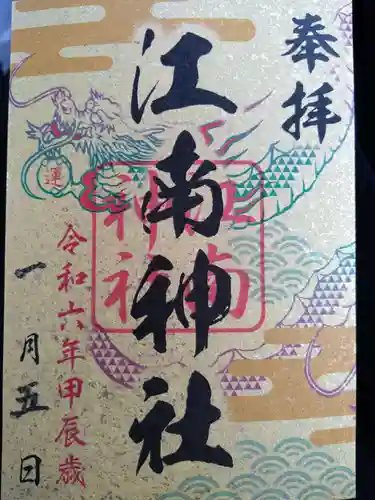 奉拝
江南神社
江南神社
運
令和六年甲辰歳
一月五日